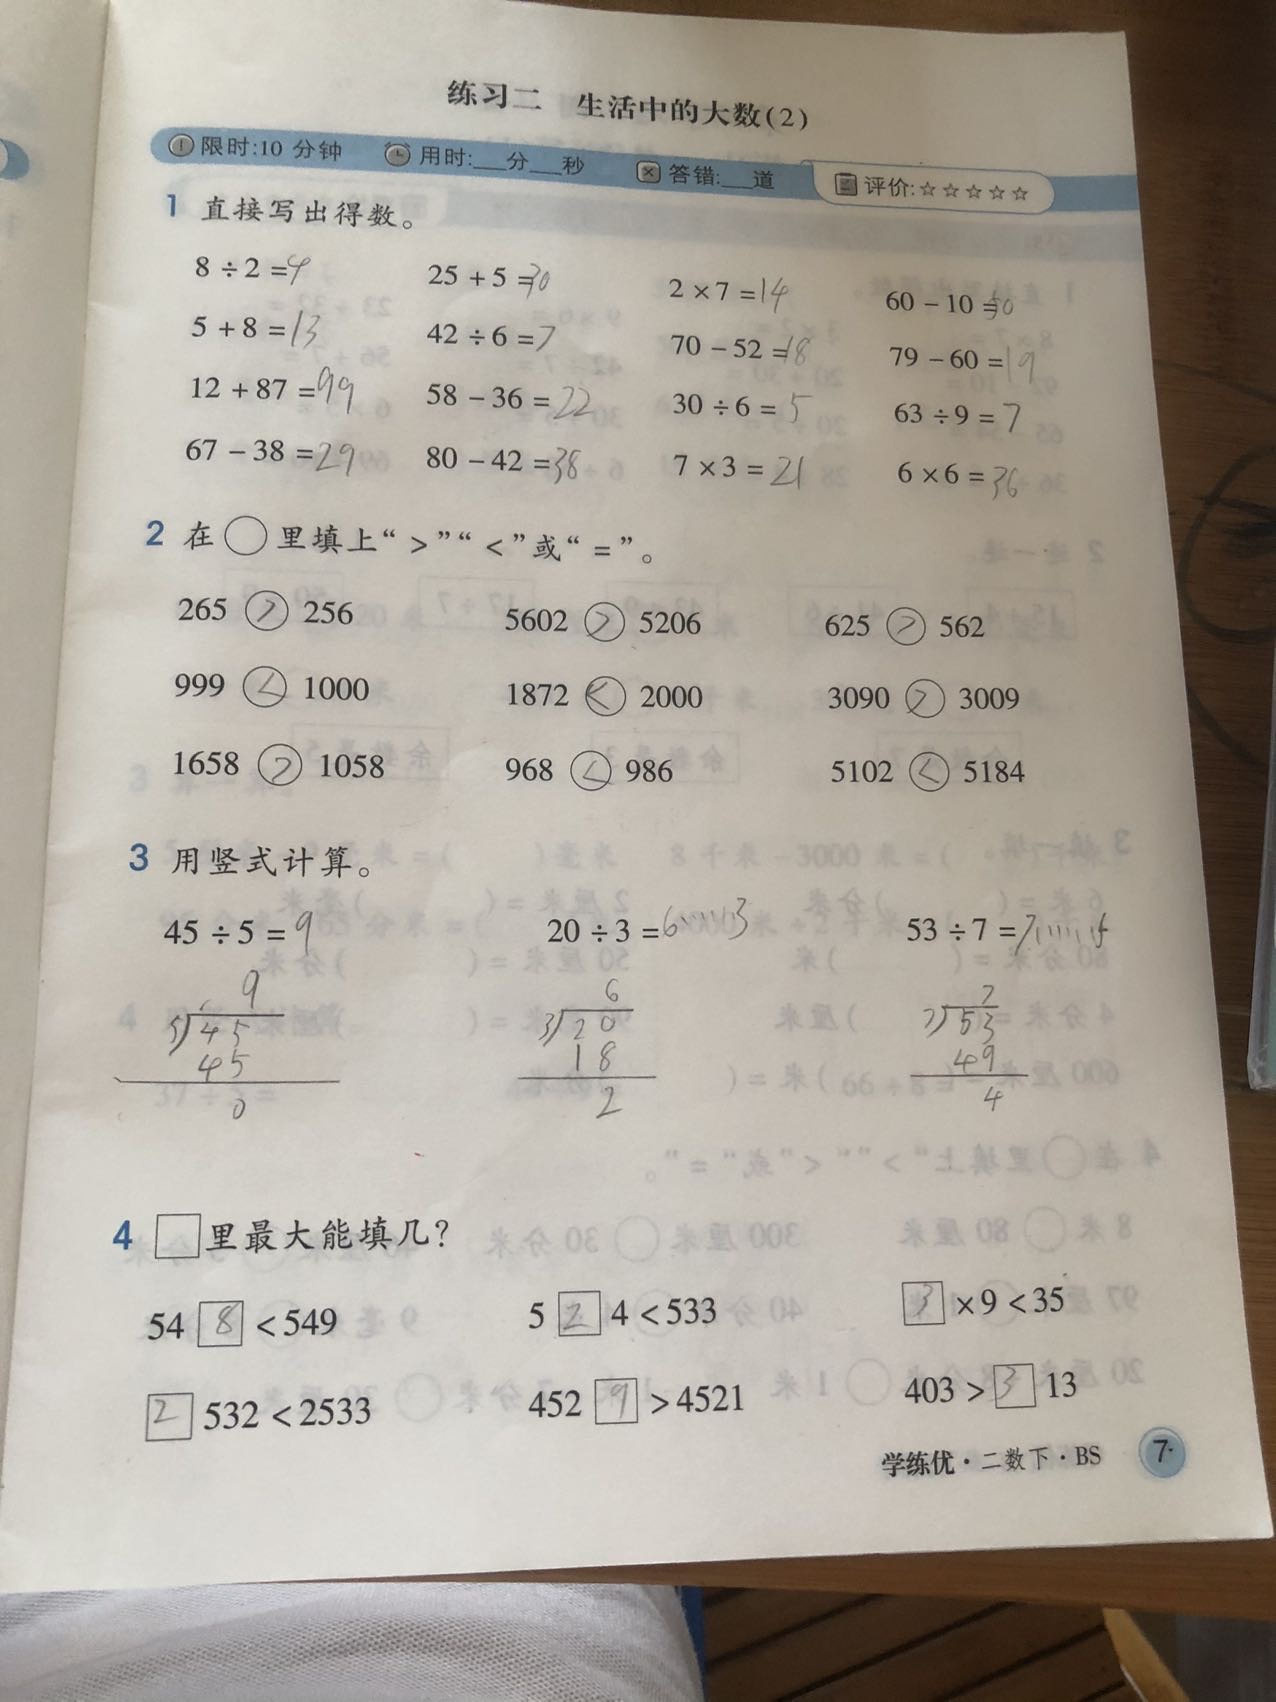 练习二 生活中的大数(2)
限时:10 分钟 用时:___分___秒 答错:___道 评价:☆☆☆☆☆
1 直接写出得数。
8÷2=4 25+5=30 2×7=14 60-10=50
5+8=13 42÷6=7 70-52=18 79-60=19
12+87=99 58-36=22 30÷6=5 63÷9=7
67-38=29 80-42=38 7×3=21 6×6=36
2 在○里填上“>”“<”或“=”。
265 > 256 5602 > 5206 625 > 562
999 < 1000 1872 < 2000 3090 > 3009
1658 > 1058 968 < 986 5102 < 5184
3 用竖式计算。
45÷5=9 20÷3=6……3 53÷7=7……
9 6 7
5)45 3)20 7)53
45 18 49
0 2 4
4 □里最大能填几?
54 8 <549 5 2 4<533 3 ×9<35
2 532<2533 452 9 >4521 403> 3 13
学练优·二数下·BS 7